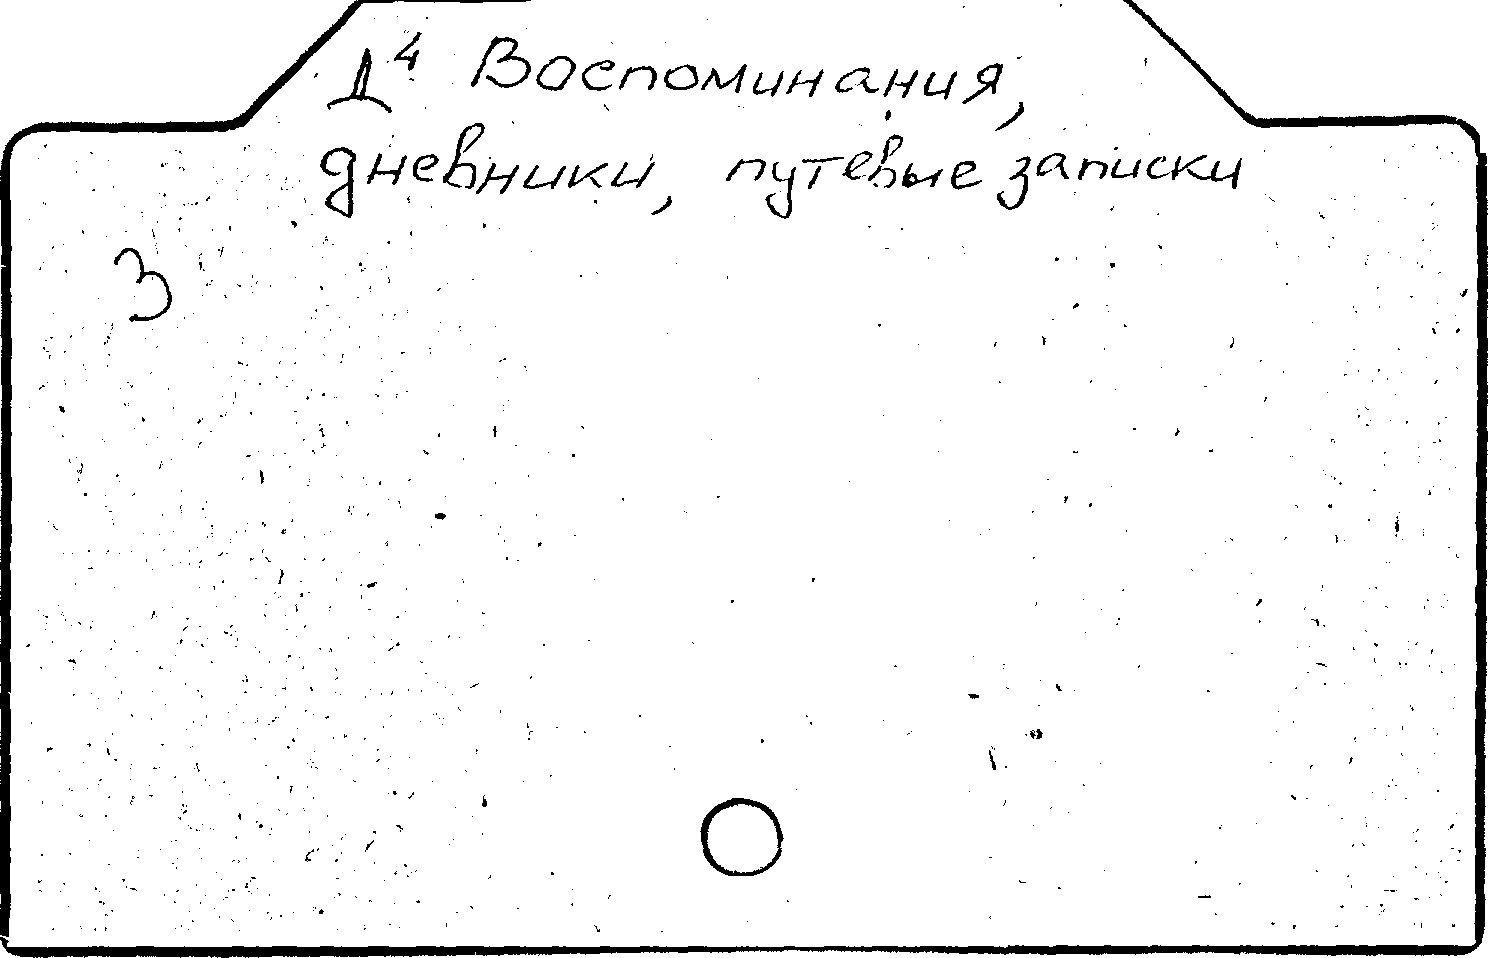 Д⁴ Воспоминания,
дневники, путевые записки
3